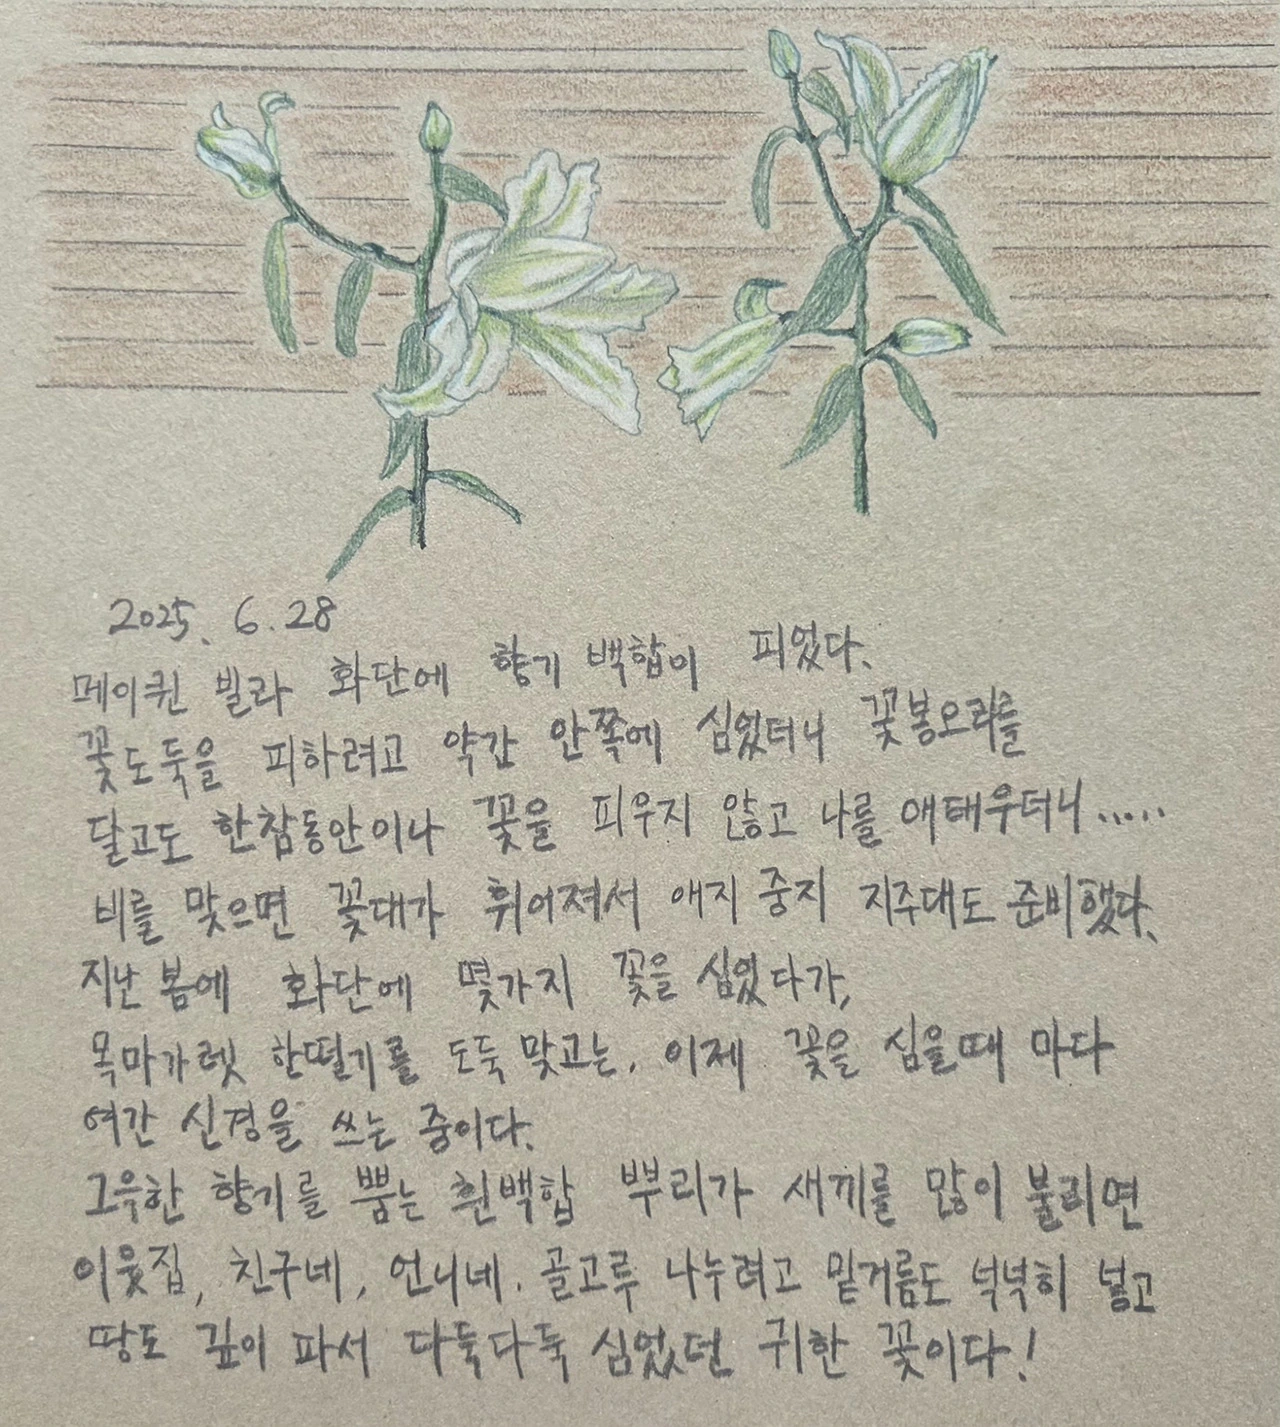 2025. 6. 28
메이퀸 빌라 화단에 향기 백합이 피었다.
꽃도둑을 피하려고 약간 안쪽에 심었더니 꽃봉오리를
달고도 한참동안이나 꽃을 피우지 않고 나를 애태우더니.....
비를 맞으면 꽃대가 휘어져서 애지중지 지주대도 준비했다.
지난 봄에 화단에 몇가지 꽃을 심었다가,
목마가렛 한떨기를 도둑맞고는, 이제 꽃을 심을때 마다
여간 신경을 쓰는 중이다.
그윽한 향기를 뿜는 흰백합 뿌리가 새끼를 많이 불리면
이웃집, 친구네, 언니네. 골고루 나누려고 밑거름도 넉넉히 넣고
땅도 깊이 파서 다둑다둑 심었던 귀한 꽃이다!